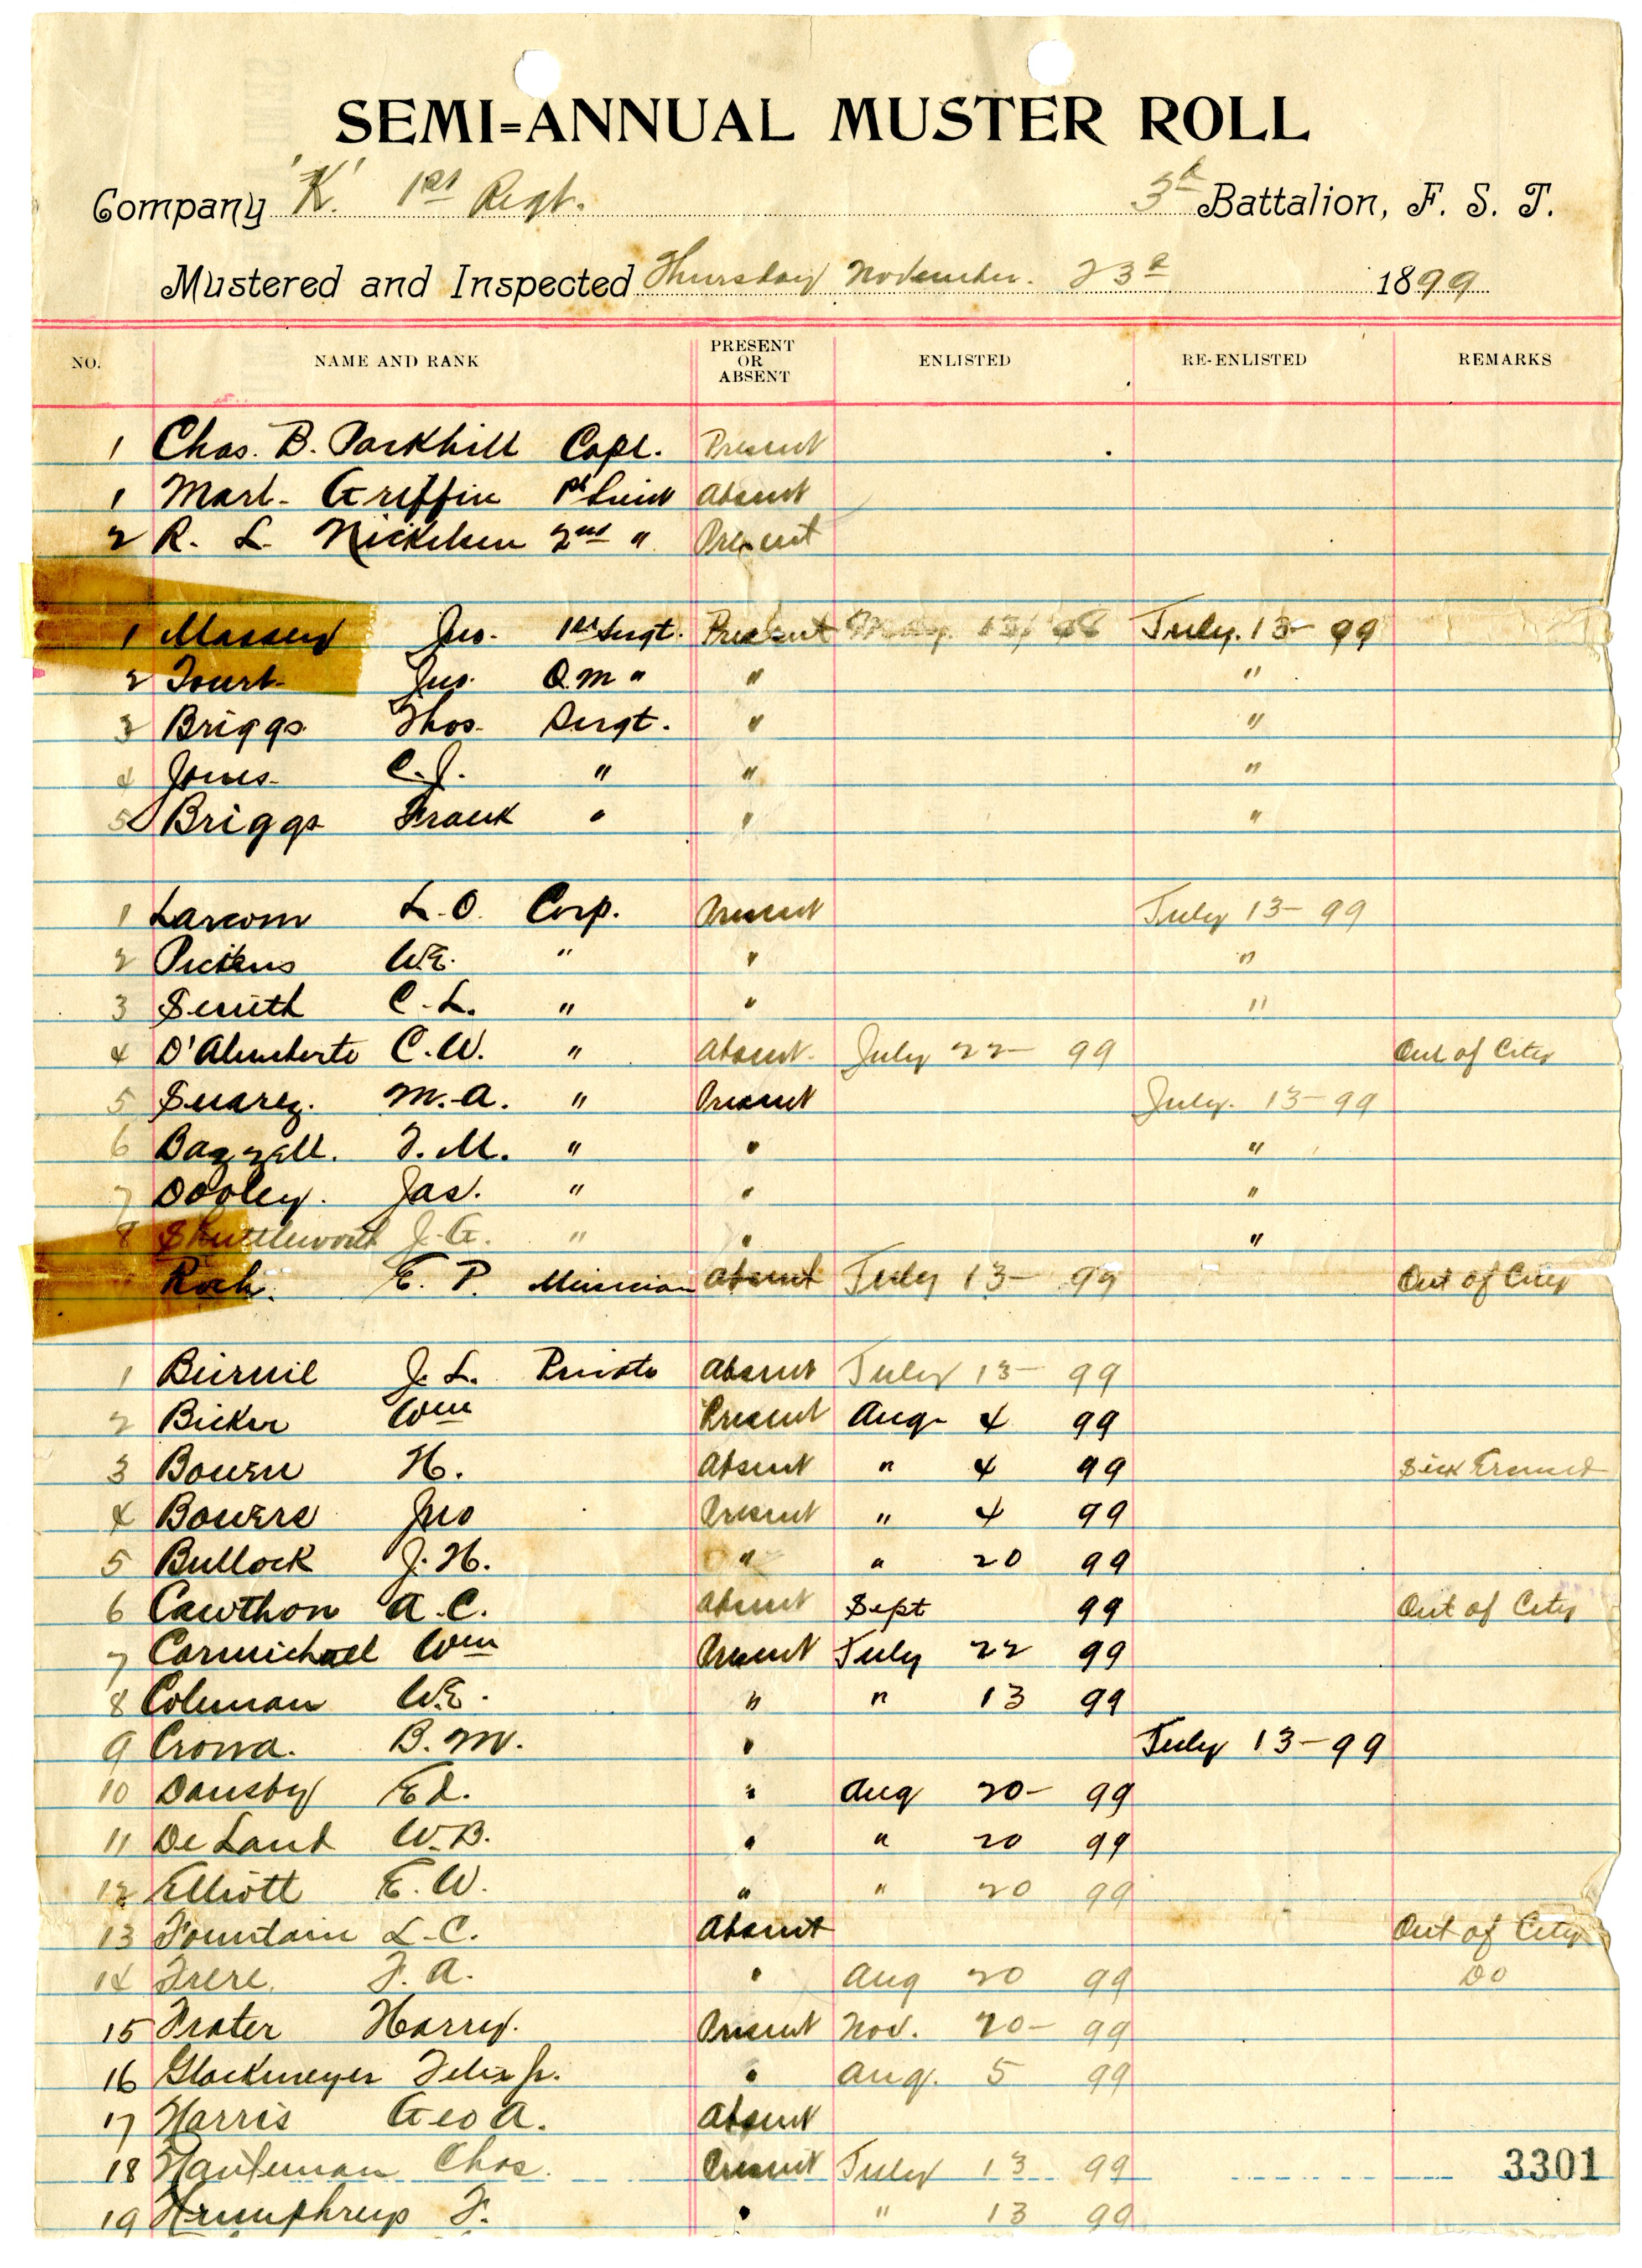 SEMI=ANNUAL MUSTER ROLL
Company 'K'. 1st Regt. 3d Battalion, F. S. T.
Mustered and Inspected Thursday November. 23d 1899
NO. NAME AND RANK PRESENT OR ABSENT ENLISTED RE-ENLISTED REMARKS
1 Chas. B. Parkhill Capt. Present
1 Marl- Griffin 1st Lieut Absent
2 R. L. Nickelsen 2nd " Present
1 Massey Jno. 1st Sergt. Present May 13/98 July. 13-99
2 Jno. Q.M " " "
3 Briggs Thos. Sergt. " "
4 Jones- C.J. " " "
5 Briggs Frank " " "
1 Larcom L.O. Corp. Present July 13-99
2 Pickens W.E. " " "
3 Smith C.L. " " "
4 D'Alemberte C.W. " Absent. July 22- 99 Out of City
5 Suarez. M.A. " Present July. 13-99
6 Bazzell. T.M. " " "
7 Dooley. Jas. " " "
8 Shuttleworth J.G. " " "
Roch. E. P. Musician Absent July 13- 99 Out of City
1 J.L. Private Absent July 13- 99
2 Bicker Wm Present Aug- 4 99
3 Bowen H. Absent " 4 99 Sick Excused
4 Bowers Jno Present " 4 99
5 Bullock J.H. " " 20 99
6 Cawthon A.C. Absent Sept 99 Out of City
7 Carmichael Wm Present July 22 99
8 Coleman W.E. " " 13 99
9 Crona. B.M. " July 13-99
10 Dansby Ed. " Aug 20- 99
11 De Land W.B. " " 20 99
12 Elliott E.W. " " 20 99
13 Fountain L.C. Absent Out of City
14 Frere. F.A. " Aug 20 99 Do
15 Frater Harry. Present Nov. 20- 99
16 Glackmeyer Felix Jr. " Aug. 5 99
17 Harris Geo A. Absent
18 Hanleman Chas. Present July 13 99
19 Humphreys F. " " 13 99
3301